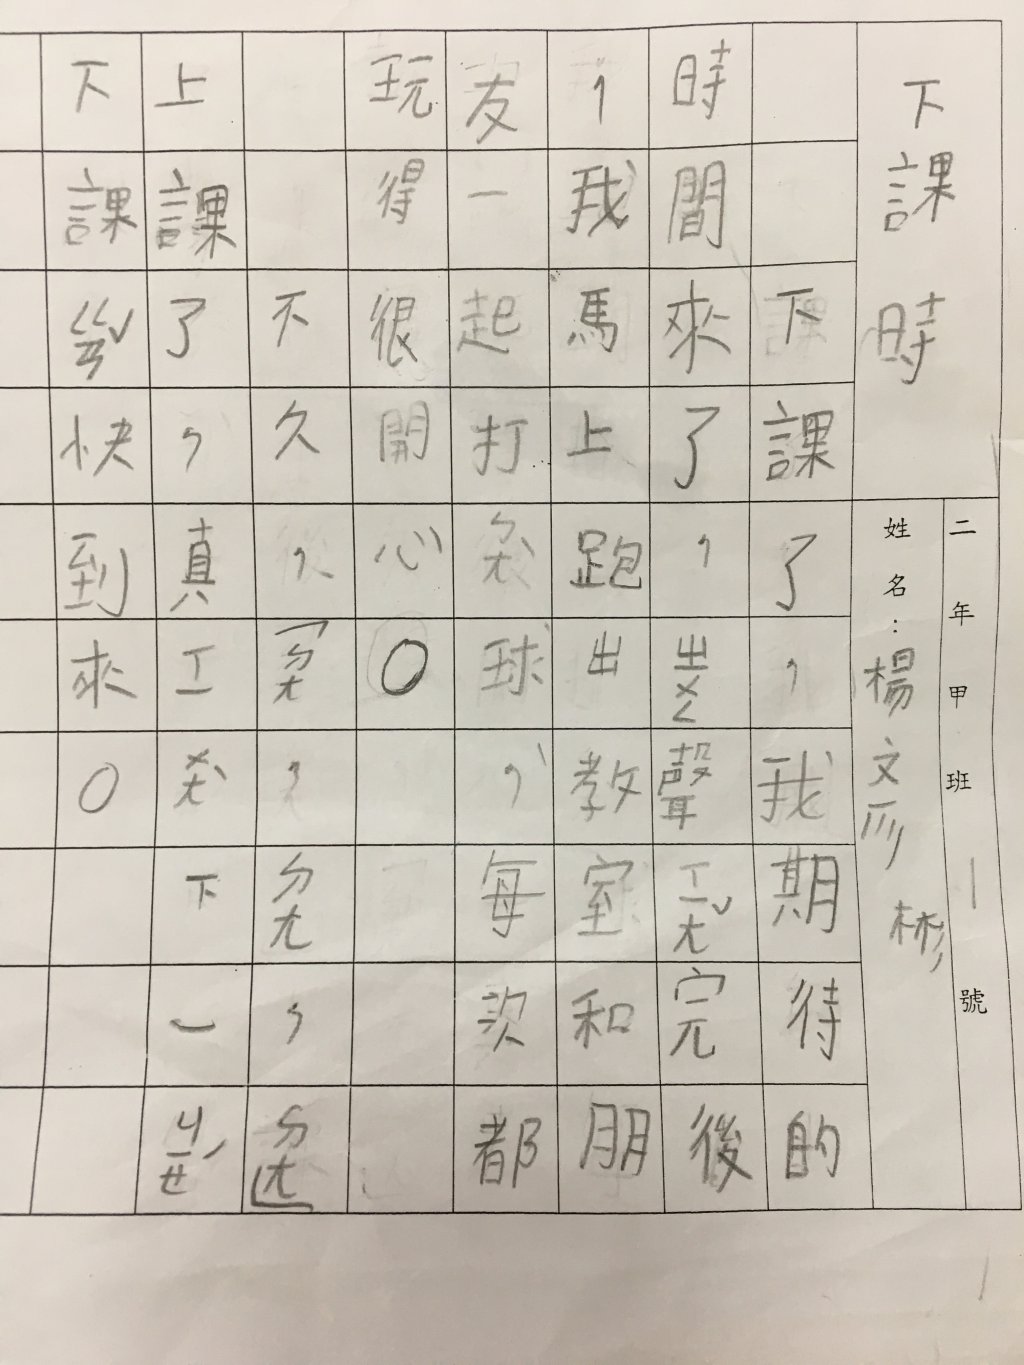 下課時
二年甲班 一 號
姓名：楊文彡彬
下課了，我期待的
時間來了，ㄓㄨㄥ聲ㄒㄧㄤˇ完後
，我馬上跑出教室和朋
友一起打ㄅㄤˋ球，每次都
玩得很開心。
不久，「ㄉㄤ，ㄉㄤ，ㄉㄤ」
上課了，真ㄒㄧㄨㄤˋ下一ㄐㄧㄝˊ
下課ㄍㄢˇ快到來。